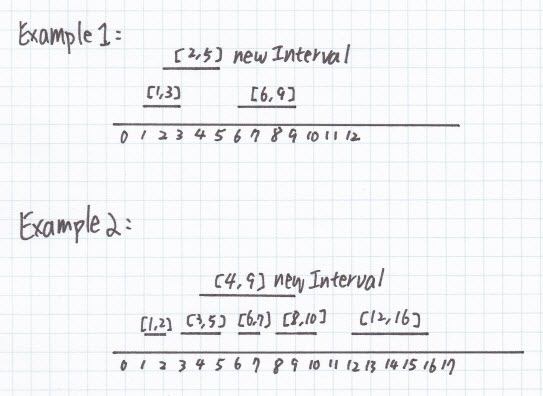 Example 1:
[2,5] new Interval
[1,3] [6,9]
0 1 2 3 4 5 6 7 8 9 10 11 12
Example 2:
[4,9] new Interval
[1,2] [3,5] [6,7] [8,10] [12,16]
0 1 2 3 4 5 6 7 8 9 10 11 12 13 14 15 16 17